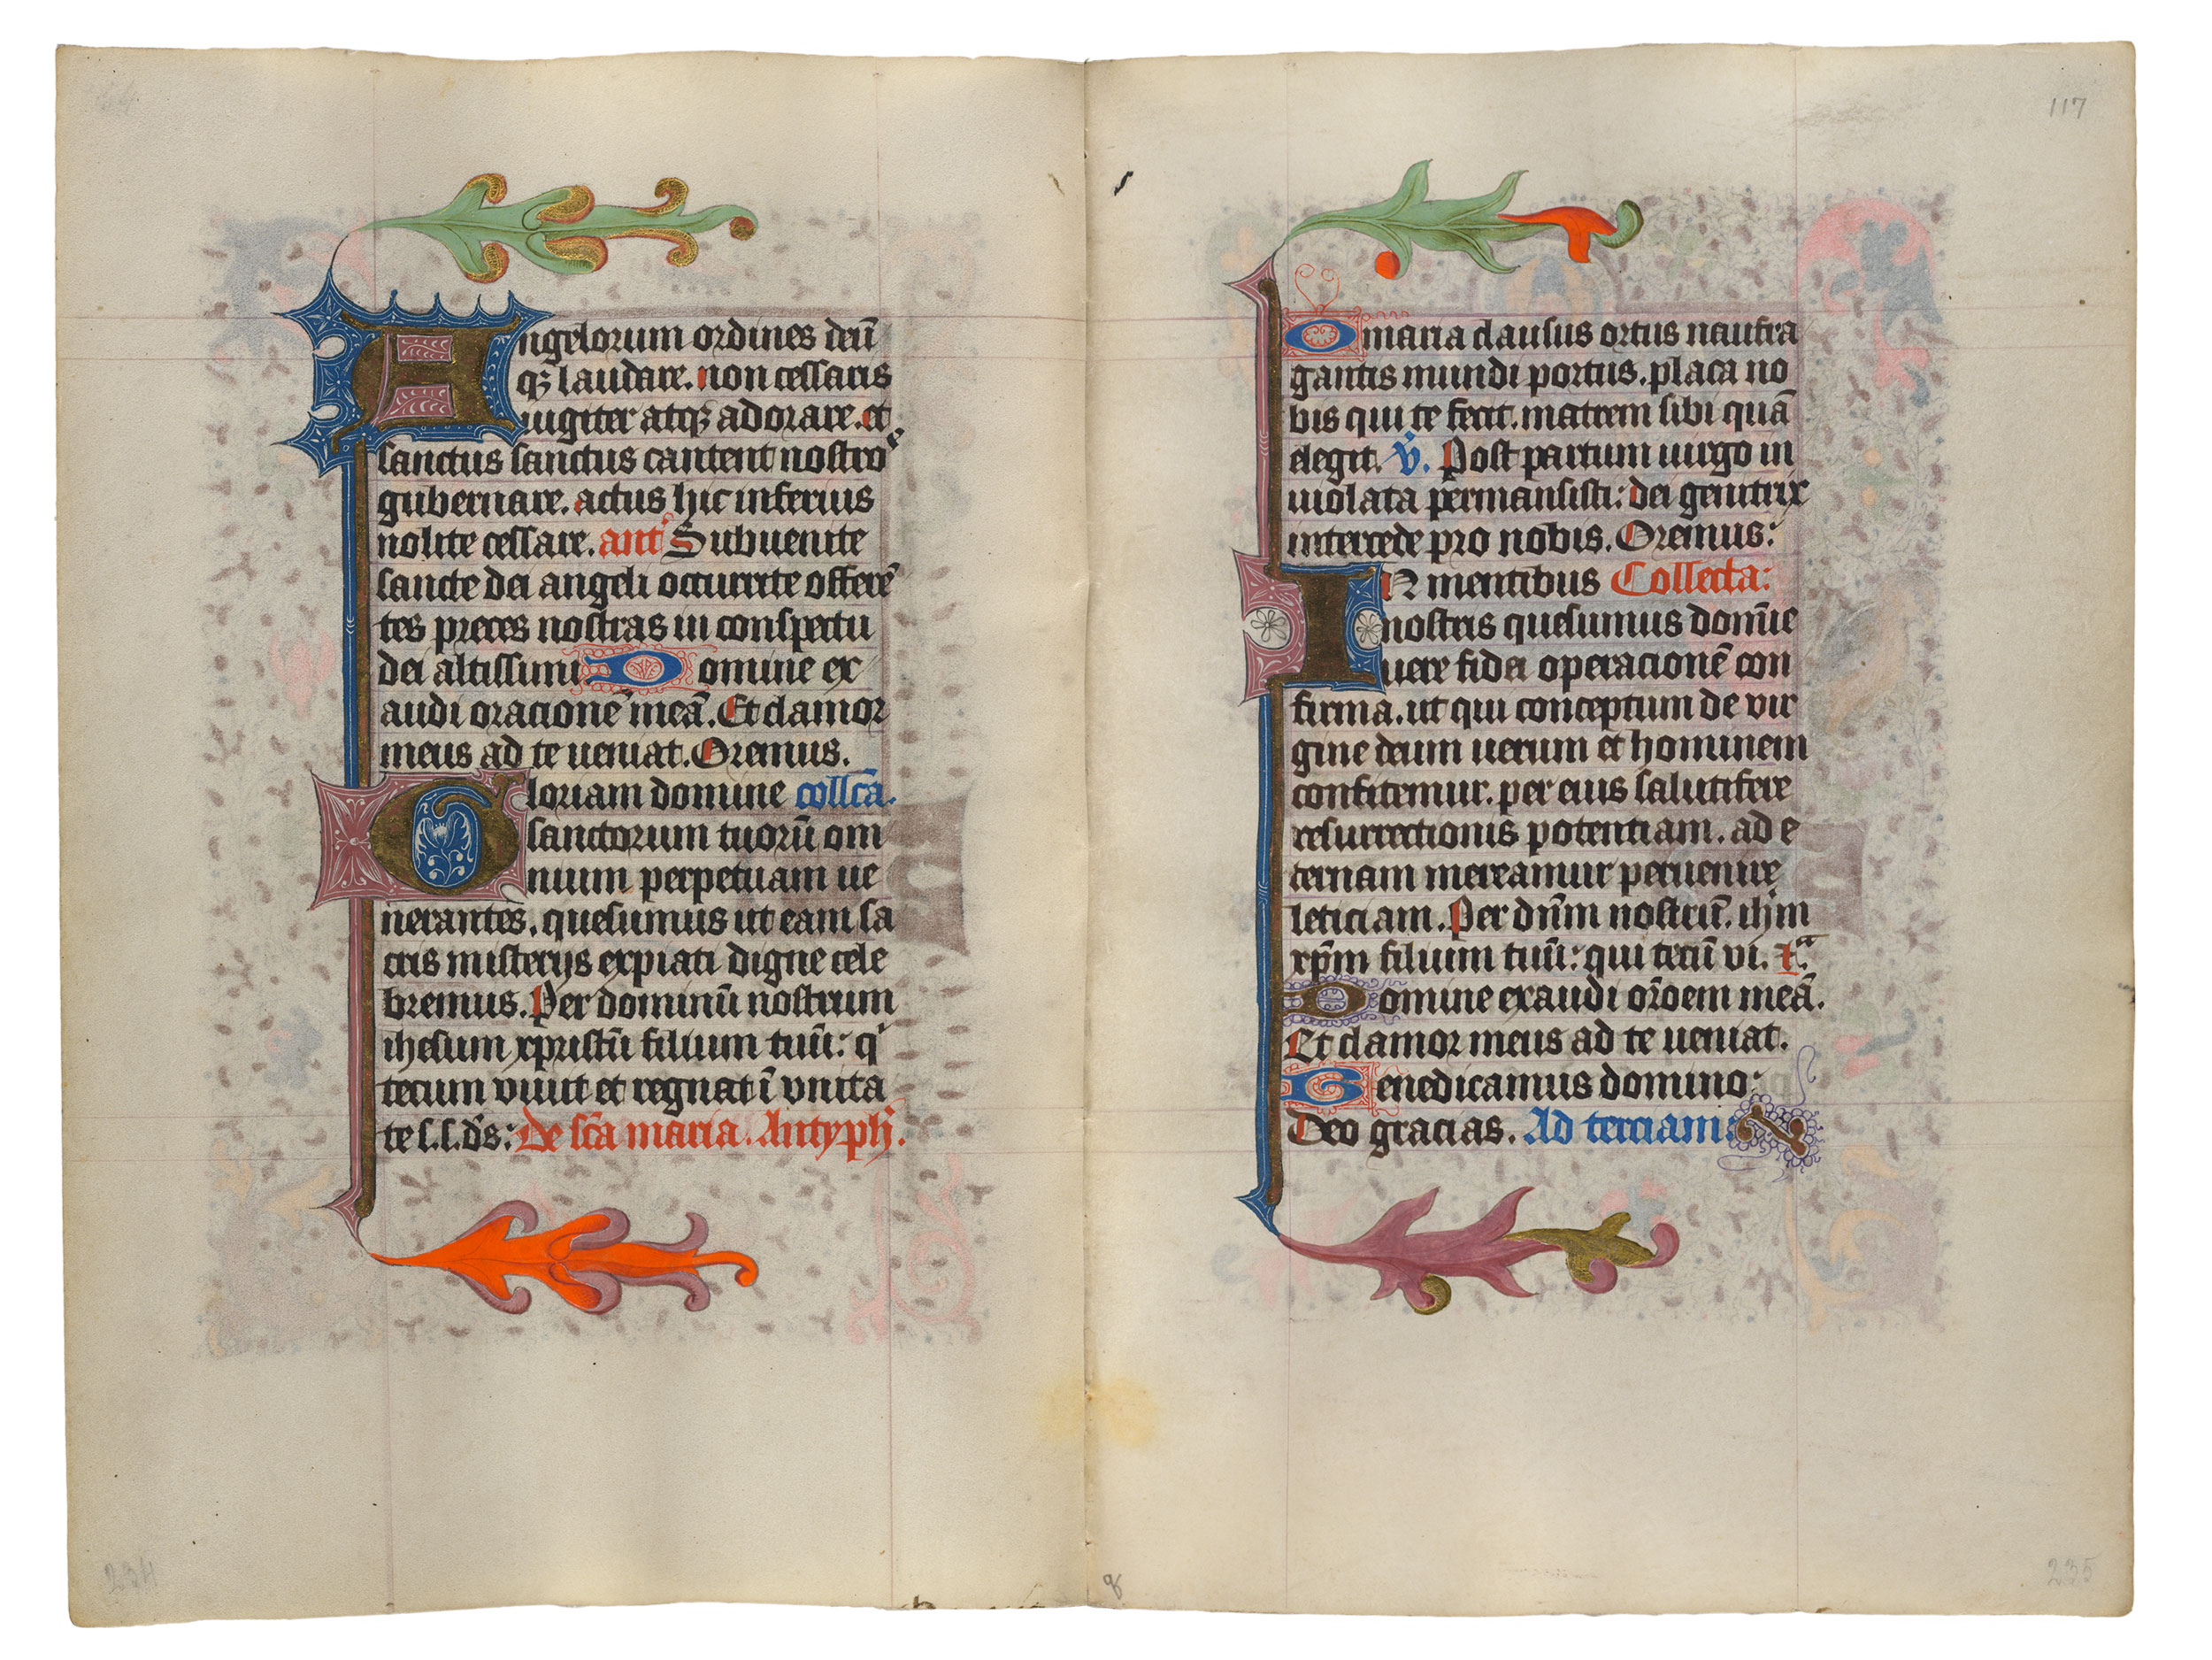 Angelorum ordines deū
qꝫ laudare. non cessatis
iugiter atqꝫ adorare. et
sanctus sanctus cantent nostros
gubernare. actus hic inferius
nolite cessare. ant' Subuenite
sancte dei angeli occurrite offerē
tes preces nostras in conspectu
dei altissimi Domine ex
audi oracionē meā. Et clamor
meus ad te ueniat. Oremus.
Gloriam domine collcā.
sanctorum tuorū om
nium perpetuam ue
nerantes. quesumus ut eam sa
cris misterijs expiati digne cele
bremus. Per dominū nostrum
ihesum xpristū filium tuū: qͥ
tecum viuit et regnat ī vnita
te s. s. dс̄: De sc̄a maria. Antyph'.
117
O maria clausus ortus naufra
gantis mundi portus. placa no
bis qui te fecit. matrem sibi quā
elegit. v̄. Post partum uirgo in
uiolata permansisti: dei genitrix
intercede pro nobis. Oremus:
IN mentibus Collecta:
nostris quesumus domīe
uere fidei operacionē con
firma. ut qui conceptum de vir
gine deum uerum et hominem
confitemur. per eius salutifere
resurrectionis potentiam. ad e
ternam mereamur peruenire
leticiam. Per dn̄m nostrū. ihm̄
xp̄m filium tuū: qui tecū vi. tͣ.
Domine exaudi or̄oem meā.
Et clamor meus ad te ueniat.
Benedicamus domino:
Deo gracias. Ad terciam.
234
235